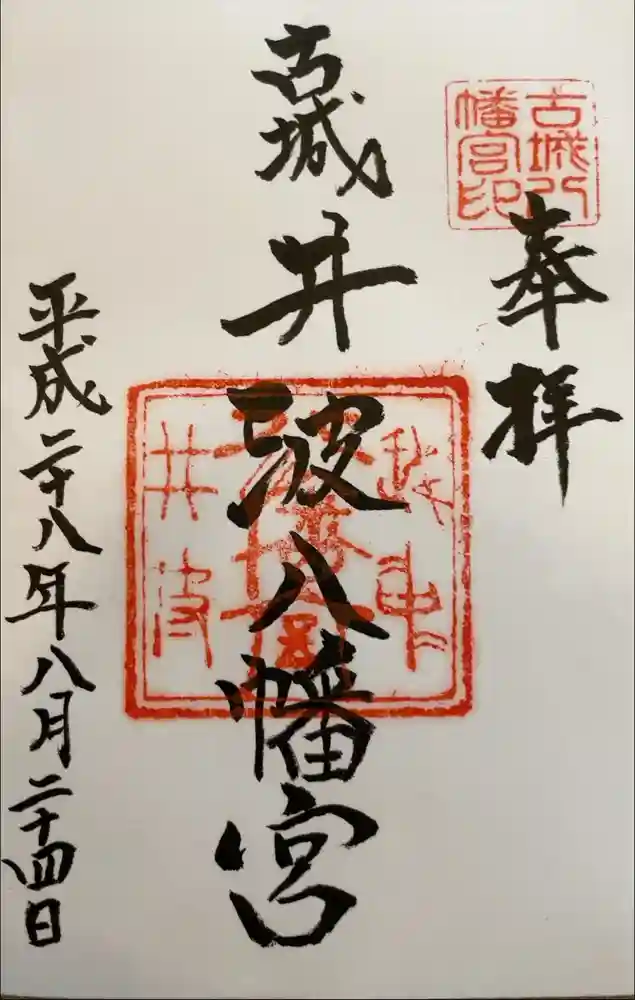 奉拝
古城八幡宮印
古城
井波八幡宮
越中
井波
平成二十八年八月二十四日